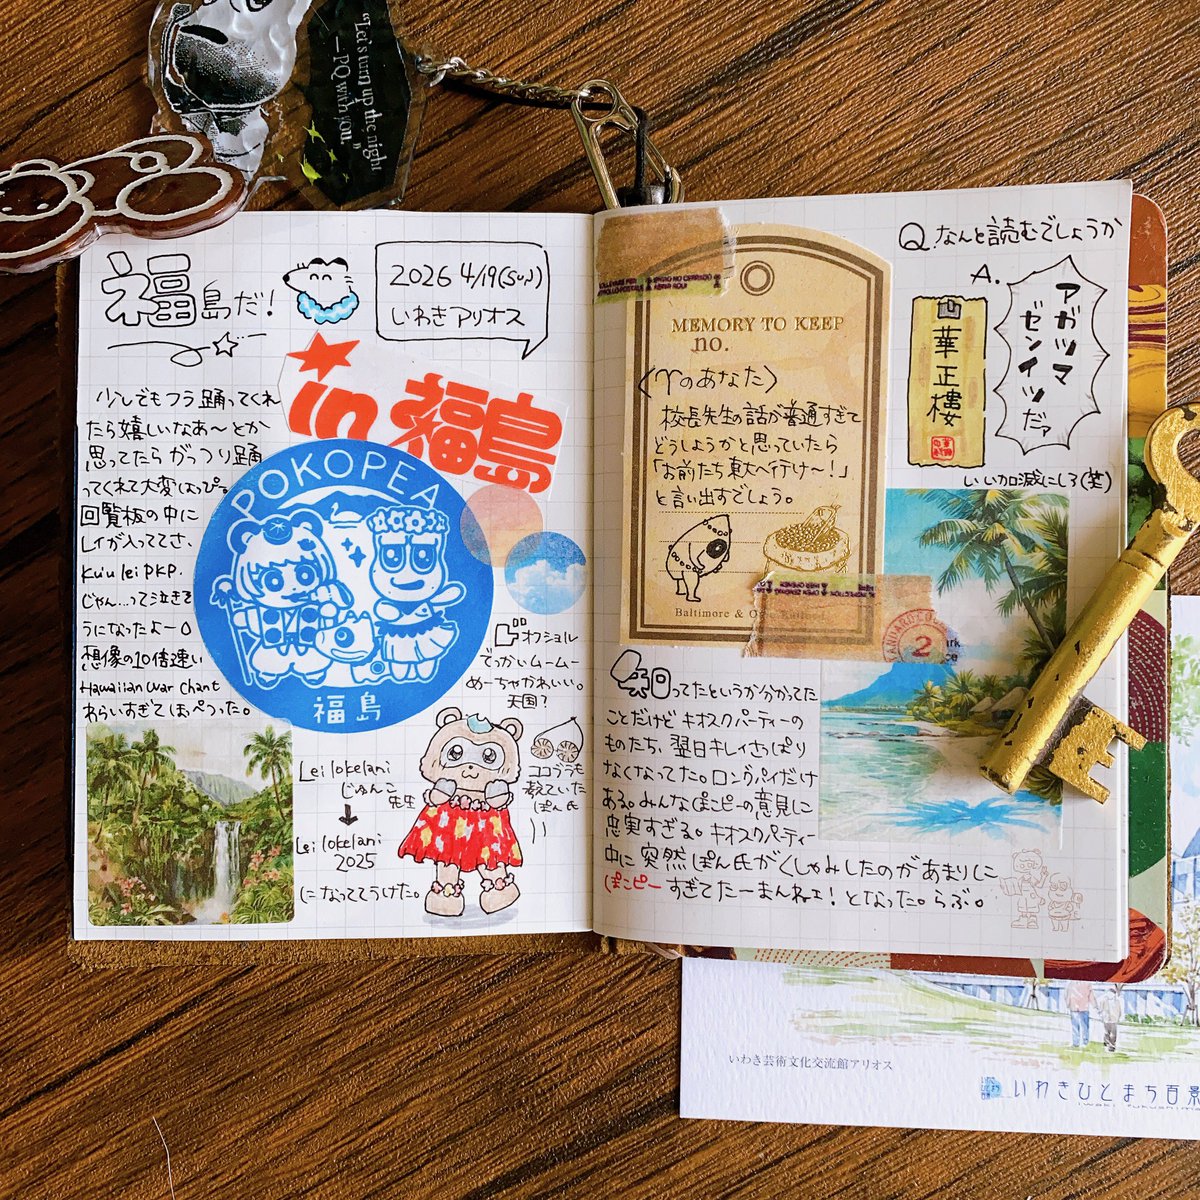 "Let's turn up the night
— PQ with you."
福島だ!
2026 4/19(sun)
いわきアリオス
in 福島
少しでもフラ踊ってくれ
たら嬉しいなあ〜とか
思ってたらがっつり踊
ってくれて大変はっぴ。
回覧板の中に
レイが入っててさ、
Ku'u lei PKP.
じゃん…って泣きそ
うになったよー0
想像の10倍速い
Hawaiian War Chant
わらいすぎてほっぺつった。
POKOPEA
福島
オフショル
でっかいムームー
めーちゃかわいい。
天国?
Lei lokelani
じゅんこ先生
↓
Lei lokelani
2025
になっててうけた。
ココプラも
教えていた
ぽん氏
MEMORY TO KEEP
no.
〈♈のあなた〉
校長先生の話が普通すぎて
どうしようかと思っていたら
「お前たち東大へ行け〜!」
と言い出すでしょう。
Baltimore &
Q なんと読むでしょうか
A.
アガツマ
ゼンイツだァ
華正樓
いい加減にしろ(笑)
2
知ってたというか分かってた
ことだけど キオスクパーティーの
ものたち、翌日キレイさっぱり
なくなってた。ロングパイだけ
ある。みんなぽこピーの意見に
忠実すぎる。キオスクパーティー
中に突然ぽん氏がくしゃみしたのがあまりに
ぽこピーすぎてたーまんねェ!となった。らぶ。
いわき芸術文化交流館アリオス
いわきひとまち百景